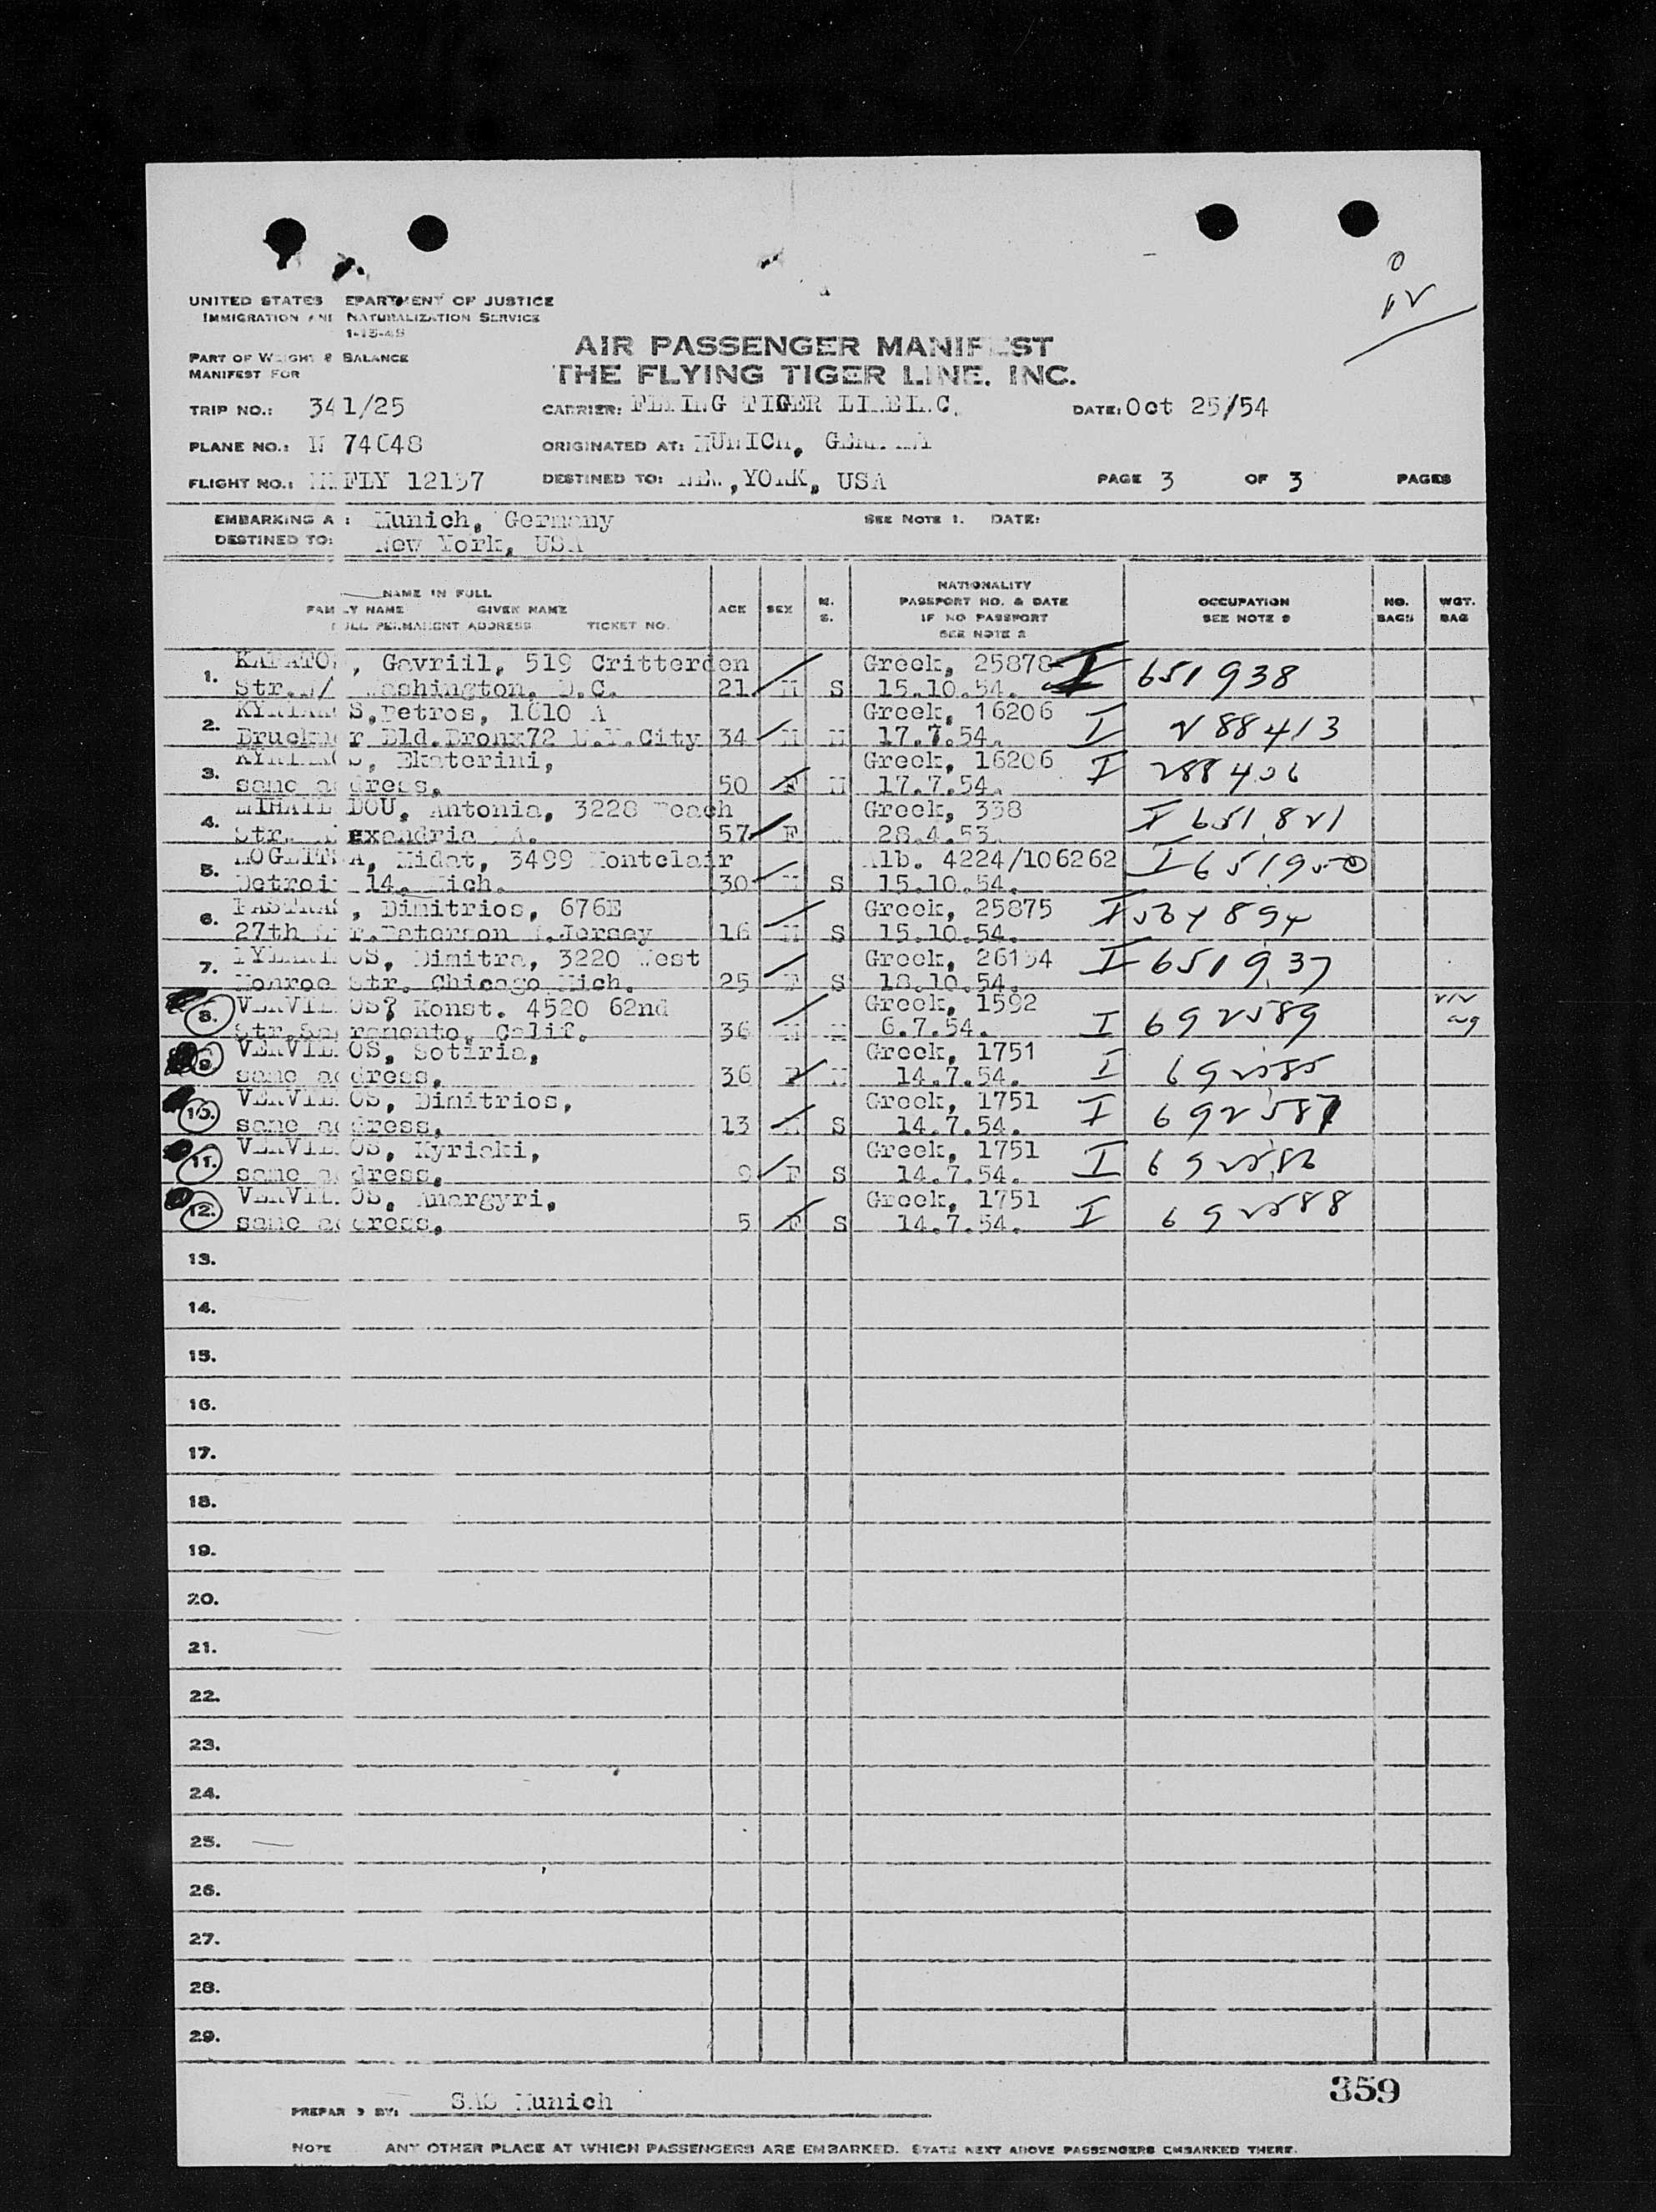 UNITED STATES EPARTMENT OF JUSTICE
IMMIGRATION AND NATURALIZATION SERVICE
PART OF WEIGHT & BALANCE
MANIFEST FOR
AIR PASSENGER MANIFEST
THE FLYING TIGER LINE. INC.
TRIP NO.: 341/25 CARRIER: FLYING TIGER DATE: Oct 25/54
PLANE NO.: N 74648 ORIGINATED AT: MUNICH, GERMANY
FLIGHT NO.: FLY 12137 DESTINED TO: NEW, YORK, USA PAGE 3 OF 3 PAGES
EMBARKING A : Munich, Germany SEE NOTE 1. DATE:
DESTINED TO: New York, USA
NAME IN FULL
FAMILY NAME GIVEN NAME
FULL PERMANENT ADDRESS TICKET NO.
AGE SEX M. S.
NATIONALITY
PASSPORT NO. & DATE
IF NO PASSPORT
SEE NOTE 2
OCCUPATION
SEE NOTE
NO. BAGS
WGT. BAG
1. , Gavriil, 519 Crittenden Greek, 25878 I 651938
Str. Washington, D.C. 21 M S 15.10.54.
2. S, Petros, 1610 A Greek, 16206 I 288413
Bld. Bronx72 N.Y. City 34 M M 17.7.54.
3. Ekaterini, Greek, 16206 I 288406
same address, 50 F M 17.7.54.
4. DOU, Antonia, 3228 Greek, 338 I 651821
Str. Alexandria VA. 57 F 28.4.53.
5. A, Midat, 3499 Montclair Alb. 4224/106262 I
Detroit 14, Mich. 30 M S 15.10.54.
6. , Dimitrios, 676E Greek, 25875 I
27th Str. Paterson N.Jersey 16 M S 15.10.54.
7. OS, Dimitra, 3220 West Greek, 26134 I 651937
Monroe Str. Chicago Mich. 25 F S 18.10.54.
8. OS, Konst. 4520 62nd Greek, 1592
Str. Sacramento, Calif. 36 M M 6.7.54. I 692589
9. OS, Sotiria, Greek, 1751
same address, 36 F M 14.7.54. I 692585
10. OS, Dimitrios, Greek, 1751
same address, 13 M S 14.7.54. I 692587
11. OS, Kyriaki, Greek, 1751
same address, 9 F S 14.7.54. I 692586
12. OS, Anargyri, Greek, 1751
same address, 5 F S 14.7.54. I 692588
13.
14.
15.
16.
17.
18.
19.
20.
21.
22.
23.
24.
25.
26.
27.
28.
29.
359
PREPARED BY: SAS Munich
NOTE ANY OTHER PLACE AT WHICH PASSENGERS ARE EMBARKED. STATE NEXT ABOVE PASSENGERS EMBARKED THERE.